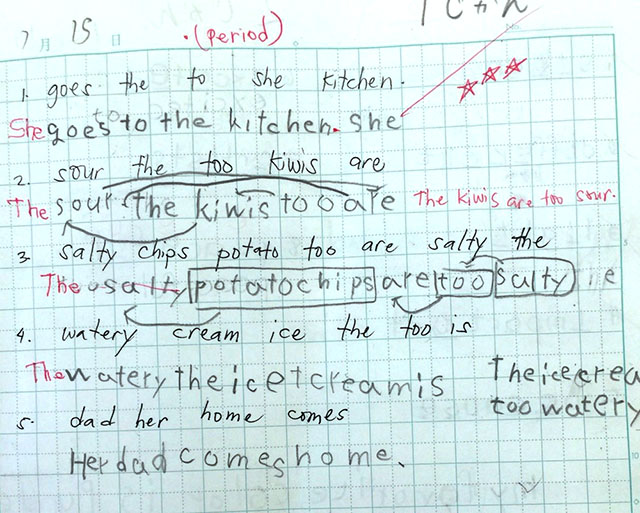 7 月 15 日 .(period)
1. goes the to she kitchen.
She goes to the kitchen. she
2. sour the too kiwis are
The sour the kiwis too are The kiwis are too sour.
3. salty chips potato too are salty the
The salty potatochips are too salty
4. watery cream ice the too is
The watery the ice creamis Theicecrea
too watery
5. dad her home comes
Her dad comes home.